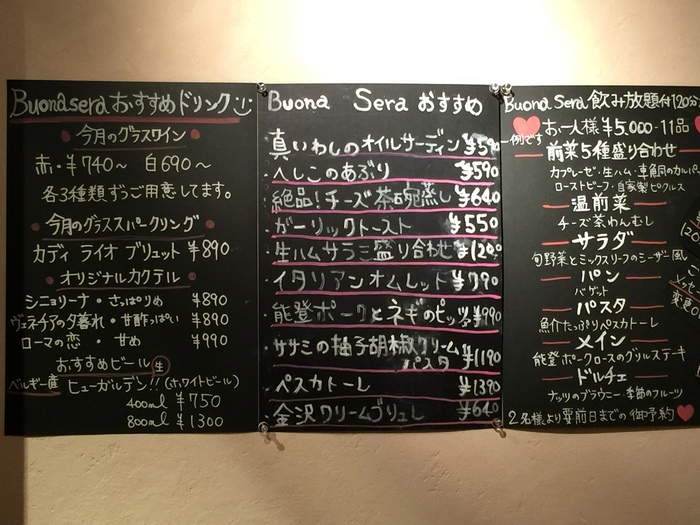 Buonasera おすすめドリンク
今月のグラスワイン
赤・¥740〜 白690〜
各3種類ずつご用意してます。
今月のグラススパークリング
カディ ライオ ブリュット ¥890
オリジナルカクテル
シニョリーナ・さっぱりめ ¥890
ヴェネチアの夕暮れ・甘酢っぱい ¥890
ローマの恋・甘め ¥990
おすすめビール 生
ベルギー産 ヒューガルデン!! (ホワイトビール)
400ml ¥750
800ml ¥1300
Buona Sera おすすめ
・真いわしのオイルサーディン ¥590
・へしこのあぶり ¥590
・絶品!チーズ茶碗蒸し ¥640
・ガーリックトースト ¥550
・生ハムサラミ盛り合わせ
・イタリアンオムレット ¥790
・能登ポークとネギのピッツァ
・ササミの柚子胡椒クリームパスタ ¥1190
・ペスカトーレ ¥1390
・金沢クリームブリュレ ¥640
Buona Sera 飲み放題付120分
お一人様 ¥5,000-11品
一例です
前菜5種盛り合わせ
カプレーゼ・生ハム・車鯛のカルパ
ローストビーフ・自家製ピクルス
温前菜
チーズ茶わんむし
サラダ
旬野菜とミックスリーフのシーザー風
パン
バゲット
パスタ
魚介たっぷりペスカトーレ
メイン
能登ポークロースのグリルステーキ
ドルチェ
ナッツのブラウニー・季節のフルーツ
2名様より要前日までの御予約